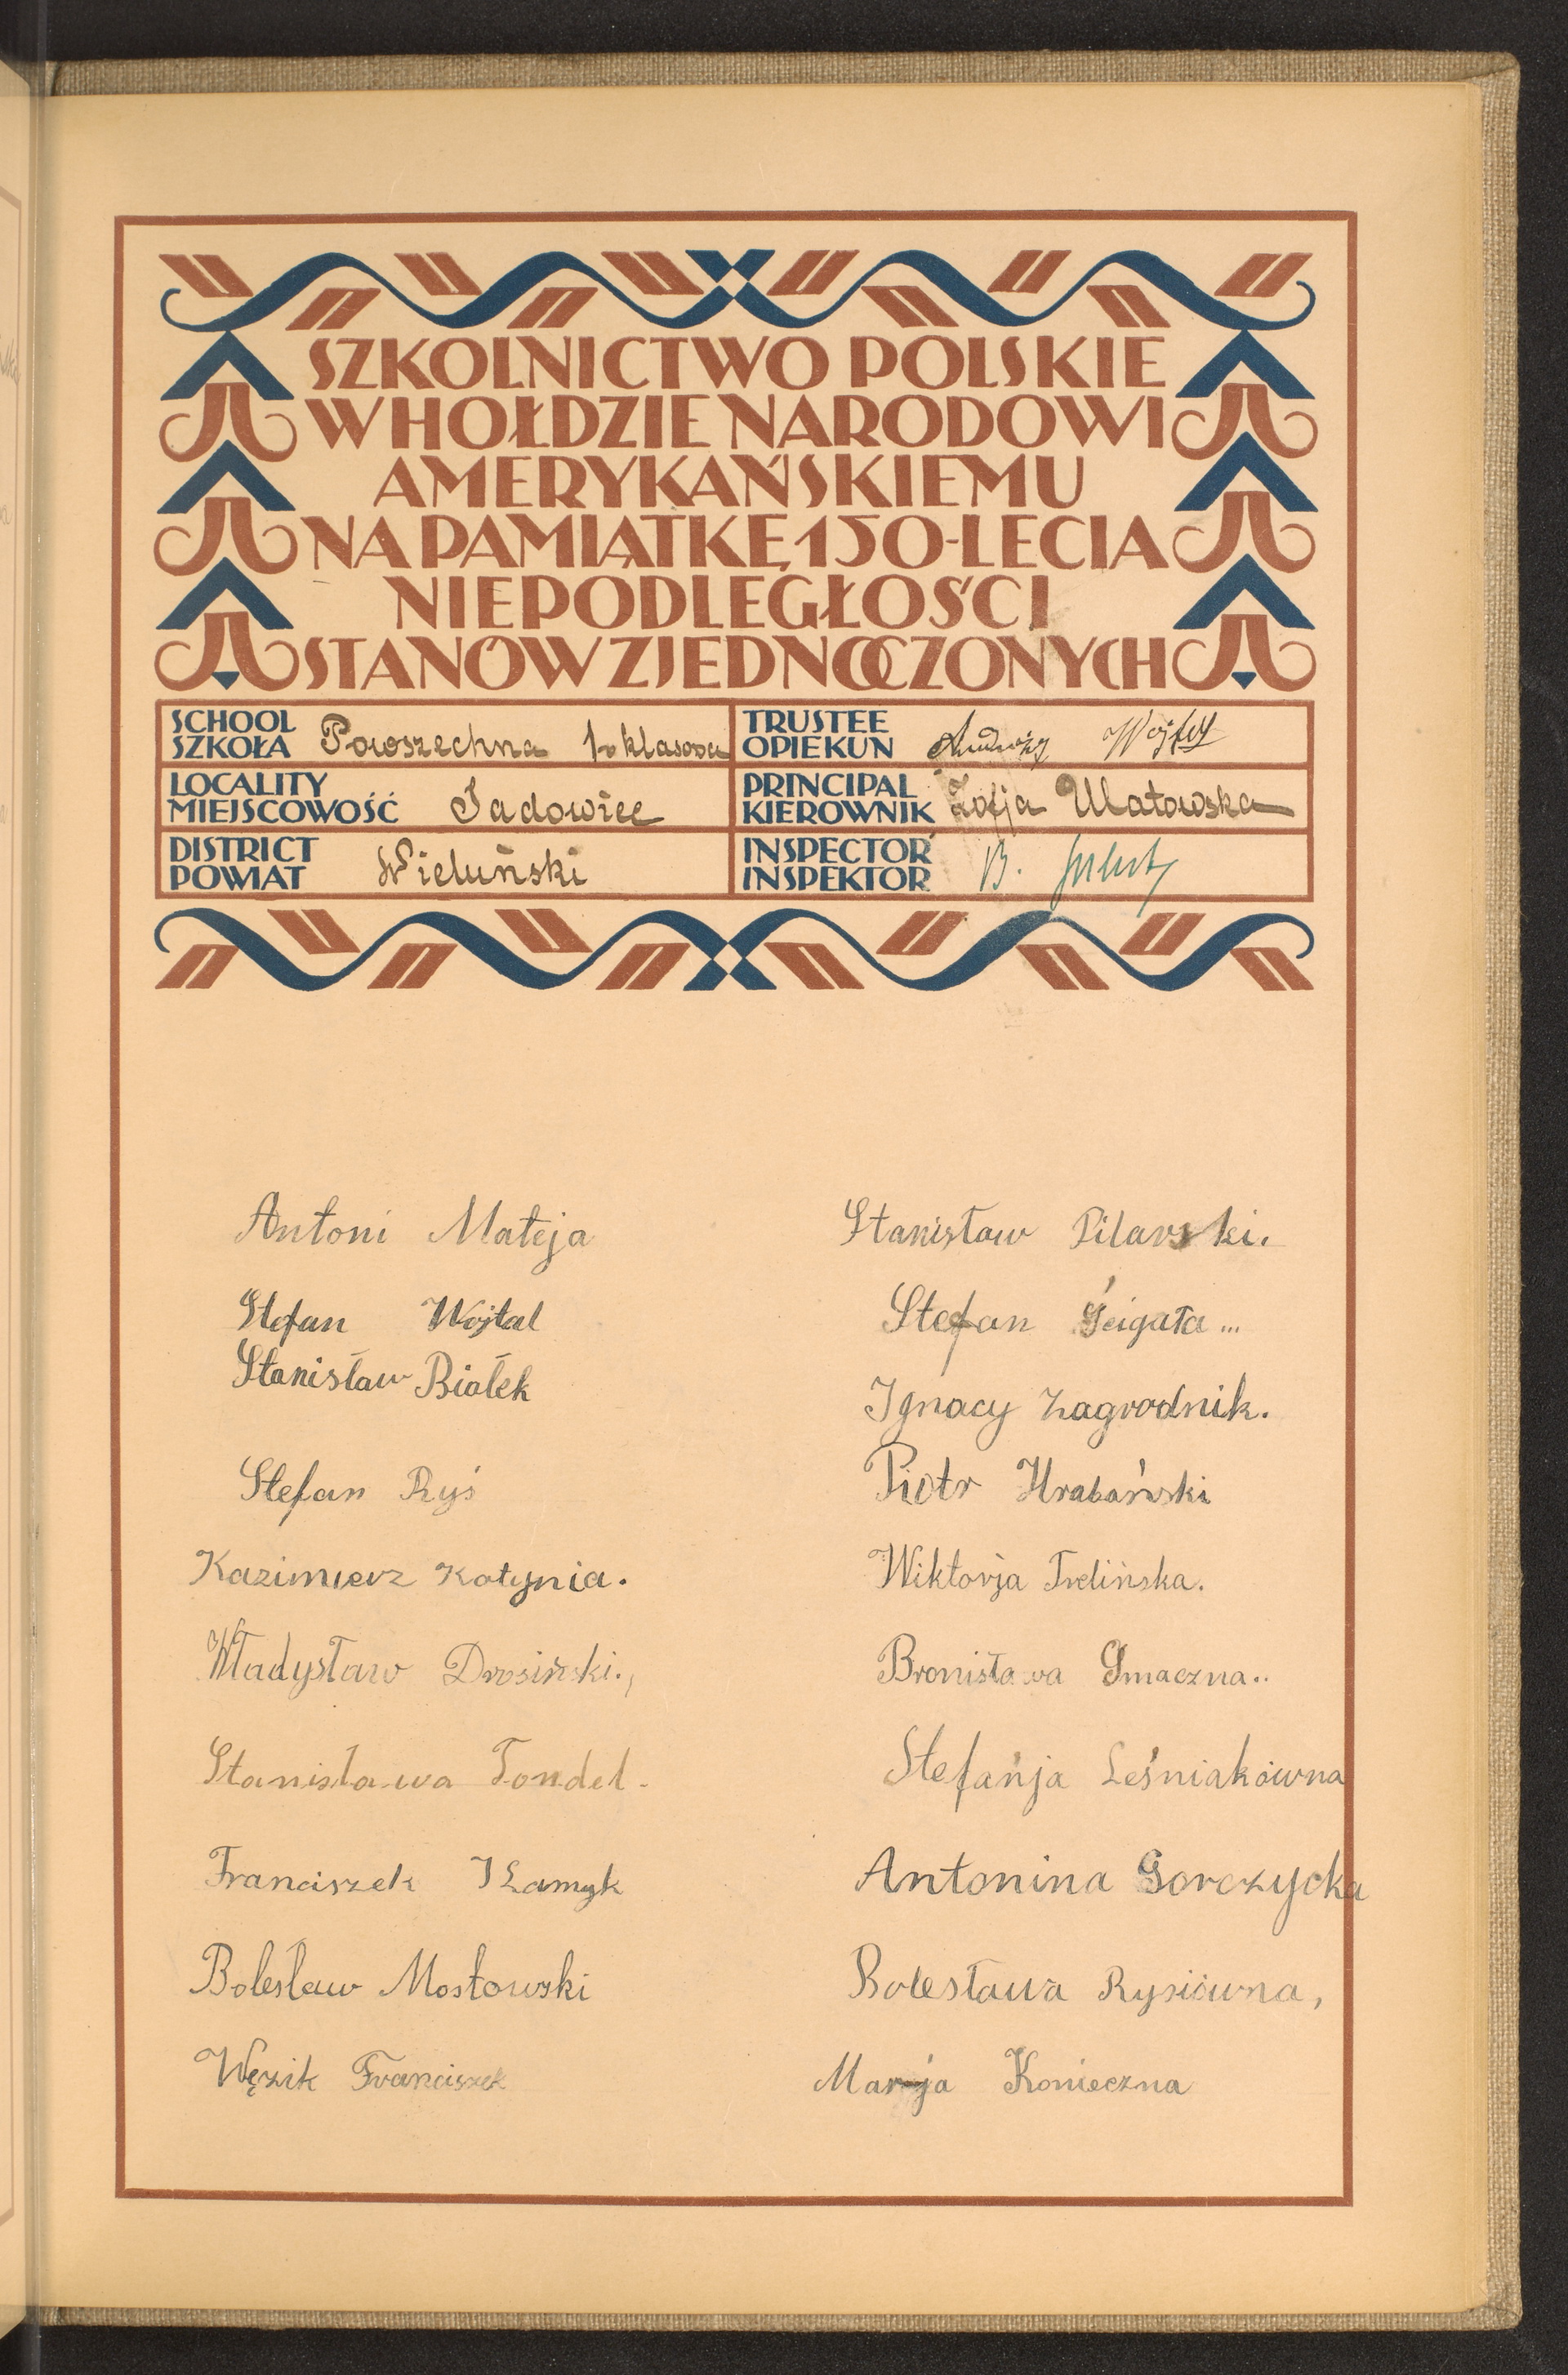 SZKOLNICTWO POLSKIE
W HOŁDZIE NARODOWI
AMERYKAŃSKIEMU
NA PAMIĄTKĘ 150-LECIA
NIEPODLEGŁOŚCI
STANÓW ZJEDNOCZONYCH
SCHOOL
SZKOŁA Powszechna 1-klasowa
TRUSTEE
OPIEKUN
LOCALITY
MIEJSCOWOŚĆ Sadowiec
PRINCIPAL
KIEROWNIK Zofja Ulatowska
DISTRICT
POWIAT Wieluński
INSPECTOR
INSPEKTOR B.
Antoni Mateja
Stefan Wojtal
Stanisław Białek
Stefan Ryś
Kazimierz Kotynia.
Władysław Drosiński.,
Stanisława Tondel.
Franciszek
Bolesław Mostowski
Węzik Franciszek
Stanisław Pilarski.
Stefan Ścigała...
Ignacy Zagrodnik.
Piotr Hrabański
Wiktorja Trelińska.
Bronisława Smaczna..
Stefańja Leśniakówna
Antonina Gorczycka
Bolesława Rysiówna,
Marja Konieczna